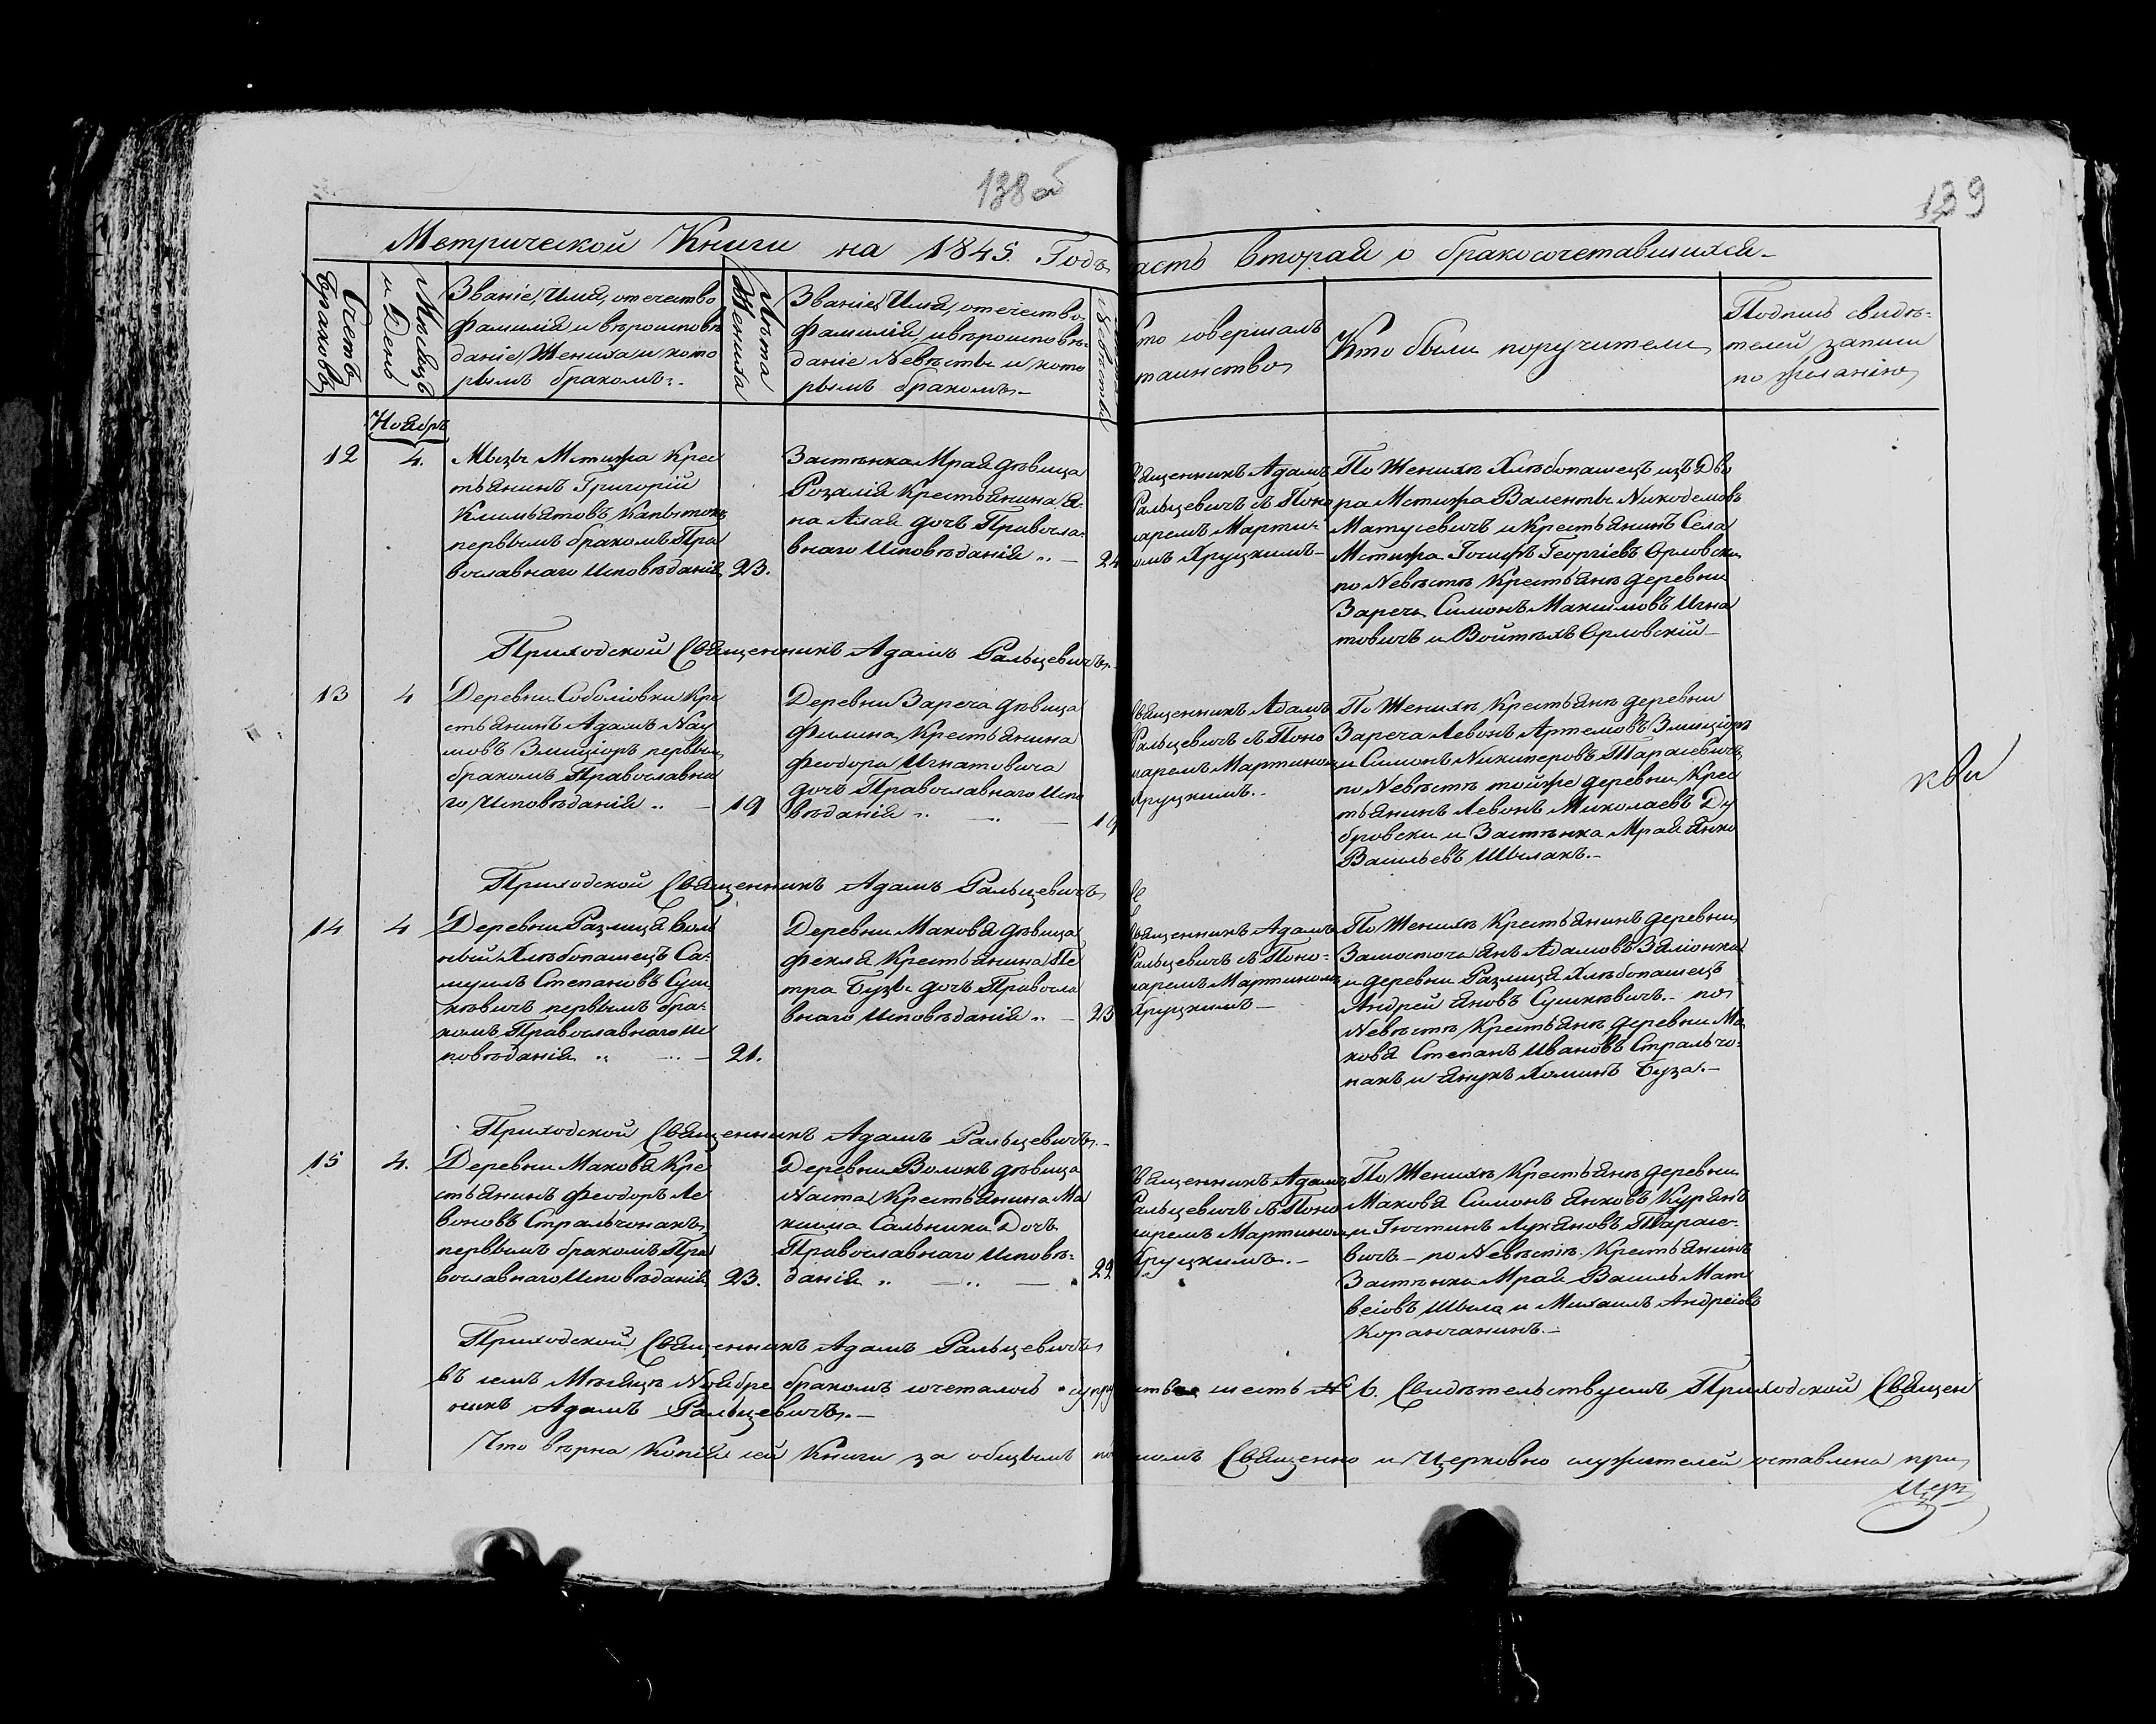 138 об
139
Метрической Книги на 1845. Годъ
асть вторая о бракосочетавшихся.
Счетъ
браковъ
Мѣсяцъ
и День
Званіе, Имя, отечество
Фамилія и вѣроисповѣ
даніе Жениха и кото
рымъ бракомъ.
Лѣта
Жениха
Званіе, Имя, отечество
Фамилія, и вѣроисповѣ-
даніе Невѣсты и кото
рымъ бракомъ.
Невѣсты
то совершалъ
таинство
Кто были поручители
Подпись свидѣ-
телей записи
по желанію
Ноябрь
12
4.
Мызы Мстижа Крес
тьянинъ Григорій
Климятовъ Капытокъ
первымъ бракомъ Пра
вославнаго Исповѣданія
23.
Застѣнка Мрай дѣвица
Розалія Крестьянина Я-
на Алая дочъ Правосла-
внаго Исповѣданія „ —
24
вященникъ Адамъ
Ральцевичъ съ Поно
маремъ Марти-
омъ Хруцкимъ —
По Женихѣ Хлѣбопашецъ изъ Дво
ра Мстижа Валенты Никодемовъ
Матусевичъ и Крестьянинъ Села
Мстижа Іосифъ Георгіевъ Орловски
по Невѣстѣ Крестьяне деревни
Заречь Симонъ Максимовъ Игна
товичъ и Войтѣхъ Орловскій —
Приходской Священникъ Адамъ Ральцевичъ. —
13
4
Деревни Соболіовки Кре
стьянинъ Адамъ Нау
мовъ Змиціоръ первым
бракомъ Православна
го Исповѣданія „ —
19
Деревни Зареча дѣвица
Филина Крестьянина
Феодора Игнатовича
дочъ Православнаго Испо
вѣданія „ — „ —
19
Священникъ Адамъ
Ральцевичъ съ Поно
маремъ Мартиномъ
Хруцкимъ. —
По Женихѣ Крестьяне деревни
Зареча Левонъ Артемовъ Змиціоръ
и Симонъ Никиперовъ Тарасевичъ
по Невѣстѣ тойже деревни Крес
тьянинъ Левонъ Миколаевъ Ду
бровски и Застѣнка Мрай Янко
Васильевъ Шылакъ. —
Приходской Священникъ Адамъ Ральцевичъ
14
4
Деревни Размица вол
ный Хлѣбопашецъ Са-
муилъ Степановъ Суш
кевичъ первымъ бра-
комъ Православнаго Ис
повѣданія „ — „ —
21.
Деревни Маковя дѣвица
Фекля Крестьянина Пе
тра Бузы дочъ Правосла
внаго Исповѣданія „ —
23
вященникъ Адамъ
Ральцевичъ съ Поно-
маремъ Мартиномъ
Хруцкимъ —
По Женихѣ Крестьянинъ деревни
Замосточа Янъ Адамовъ Заліонка
и деревни Размица Хлѣбопашецъ
Андрей Яновъ Сушкевичъ. — по
Невѣстѣ Крестьяне деревни Ма
ковя Степанъ Ивановъ Стральчо-
накъ и Янукъ Хоминъ Буза. —
Приходской Священникъ Адамъ Ральцевичъ. —
15
4.
Деревни Маковя Кре
стьянинъ Феодоръ Ле
воновъ Стральчонакъ
первымъ бракомъ Пра
вославнаго Исповѣданія
23.
Деревни Волокъ дѣвица
Наста Крестьянина Ма
ксима Сальника Дочъ
Православнаго Исповѣ-
данія „ — „ —
22
вященникъ Адамъ
альцевичъ съ Поно
маремъ Мартиномъ
Хруцкимъ. —
По Женихѣ Крестьяне деревни
Маковя Симонъ Янковъ Курянъ
и Іюстинъ Лукяновъ Тарасе-
вичъ — по Невѣстѣ Крестьянинъ
Застѣнка Мрай Василь Мат
веіовъ Шыла и Михаилъ Андреіовъ
Коранчанинъ. —
Приходской Священникъ Адамъ Ральцевичъ
въ семъ Мѣсяцѣ Ноябре бракомъ сочеталось супру
шесть № 6. Свидѣтельствуемъ Приходской Священ
никъ Адамъ Ральцевичъ. —
Что вѣрна Копія сей Книги за общымъ по
исомъ Священно и Церковно служителей оставлена при
Цер